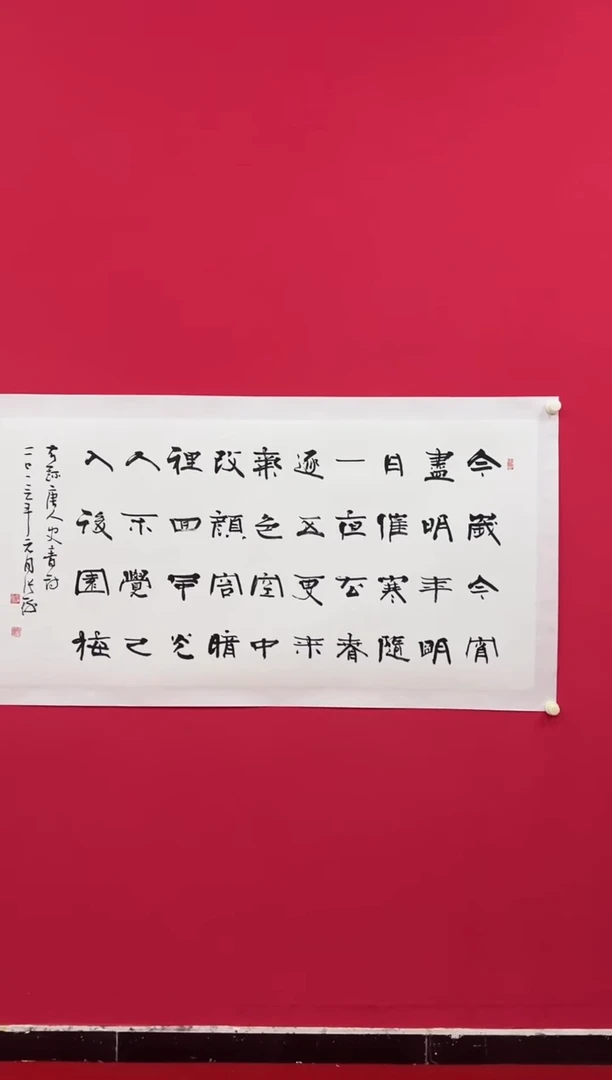 今歲今宵
盡明年明
日催寒隨
一夜去春
逐五更来
氣色空中
改顔容暗
裡回風光
人不覺已
入後園梅
右録唐人史青詩
二〇二三年元月